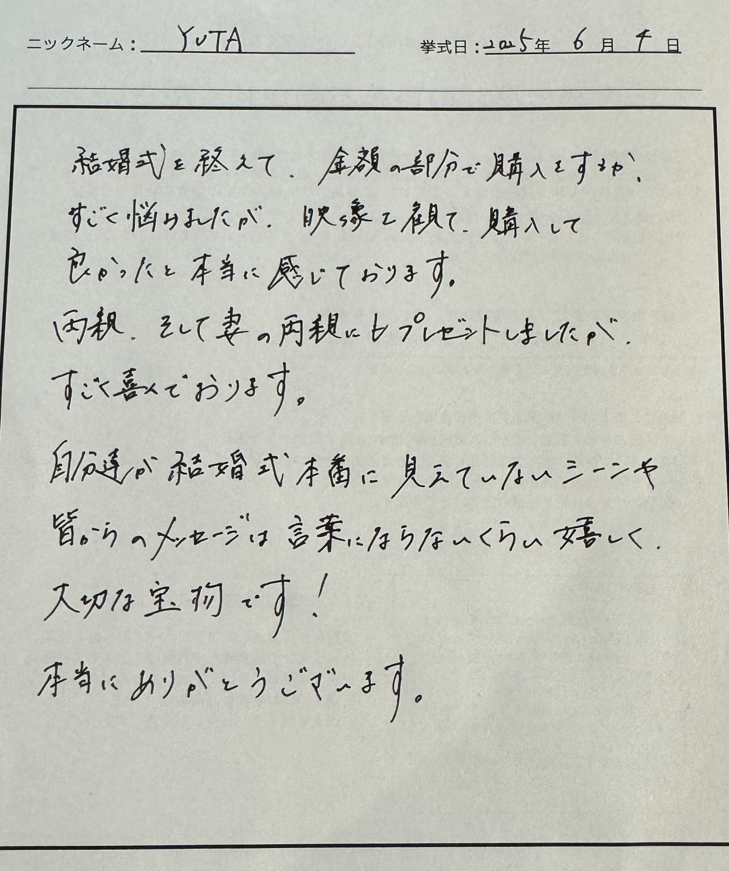 ニックネーム： YUTA 挙式日：2025年 6月 4日
結婚式を終えて、金額の部分で購入をするか、
すごく悩みましたが、映像を観て、購入して
良かったと本当に感じております。
両親、そして妻の両親にもプレゼントしましたが、
すごく喜んでおります。
自分達が結婚式本番に見えていないシーンや
皆からのメッセージは言葉にならないくらい嬉しく、
大切な宝物です！
本当にありがとうございます。